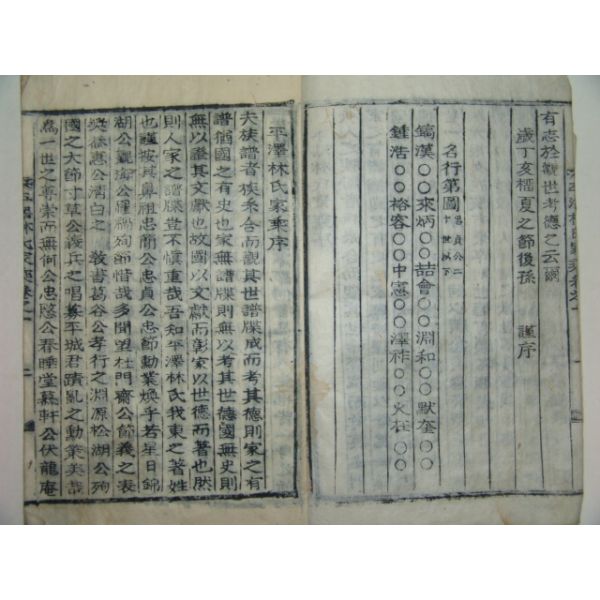 有志於觀世考德之云爾
歲丁亥榴夏之節後孫 謹序
名行第圖 貞公二十世以下
鎬漢○○來炳○○喆會○○淵和○○默奎○○
鍾浩○○格容○○中憲○○澤祚○○火在○○
平澤林氏家乘序
夫族譜者族系合而觀其世譜牒成而考其德則家之有
譜猶國之有史也家無譜牒則無以考其世德國無史則
無以證其文獻也故國以文獻而彰家以世德而著也然
則人家之譜牒豈不愼重哉吾和平澤林氏我東之著姓
也謹按其鼻祖忠簡公忠貞公忠節勳業煥乎若星日錦
湖公觀海公殉節惜哉多聞望杜門齋公節義之表
奬惠公淸白之 敎書葛谷公孝行之淵源松湖公殉
國之大節寸草公義兵之唱募平城君亂之勳業美哉
爲一世之尊崇而無何公忠隱公春睡堂慕軒公伏龍庵